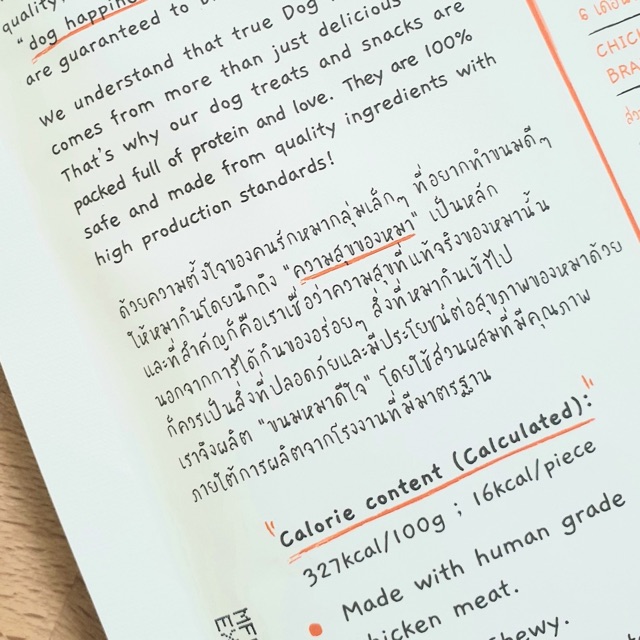 quality
"dog happin
are guaranteed to b
We understand that true Dog
comes from more than just delicious
That's why our dog treats and snacks are
packed full of protein and love. They are 100%
safe and made from quality ingredients with
high production standards!
ด้วยความตั้งใจของคนรักหมากลุ่มเล็กๆ ที่อยากทำขนมดีๆ
ให้หมากินโดยนึกถึง "ความสุขของหมา" เป็นหลัก
และที่สำคัญก็คือเราเชื่อว่าความสุขที่แท้จริงของหมานั้น
นอกจากการได้กินของอร่อยๆ สิ่งที่หมากินเข้าไป
ก็ควรเป็นสิ่งที่ปลอดภัยและมีประโยชน์ต่อสุขภาพของหมาด้วย
เราจึงผลิต "ขนมหมาดีใจ" โดยใช้ส่วนผสมที่มีคุณภาพ
ภายใต้การผลิตจากโรงงานที่มีมาตรฐาน
"Calorie content (Calculated):"
327kcal/100g ; 16kcal/piece
• Made with human grade
chicken meat.
hewy.
MF
E
6 เดือน
CHIC
BRA
ส่ว